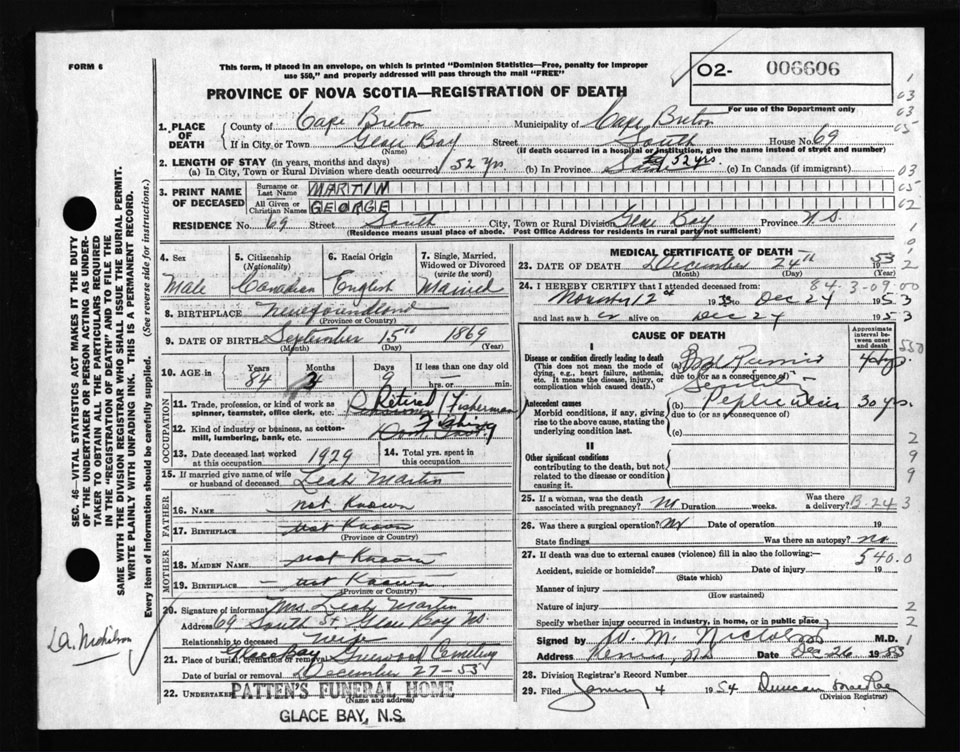 FORM 6
This form, if placed in an envelope, on which is printed "Dominion Statistics—Free, penalty for improper
use $50," and properly addressed will pass through the mail "FREE"
PROVINCE OF NOVA SCOTIA—REGISTRATION OF DEATH
O2- 006606
For use of the Department only
1. PLACE OF DEATH
County of Cape Breton Municipality of Cape Breton
If in City or Town Glace Bay Street South House No. 69
(Name) (If death occurred in a hospital or institution, give the name instead of street and number)
2. LENGTH OF STAY (in years, months and days)
(a) In City, Town or Rural Division where death occurred 52 yrs (b) In Province 52 yrs. (c) In Canada (if immigrant)
3. PRINT NAME OF DECEASED
Surname or Last Name MARTIN
All Given or Christian Names GEORGE
RESIDENCE No. 69 Street South City, Town or Rural Division Glace Bay Province N.S.
(Residence means usual place of abode. Post Office Address for residents in rural parts not sufficient)
4. Sex 5. Citizenship (Nationality) 6. Racial Origin 7. Single, Married, Widowed or Divorced (write the word)
Male Canadian English Married
8. BIRTHPLACE Newfoundland
(Province or Country)
9. DATE OF BIRTH September 15th 1869
(Month) (Day) (Year)
10. AGE in Years Months Days If less than one day
84 3 9 hrs. or min.
OCCUPATION
11. Trade, profession, or kind of work as spinner, teamster, office clerk, etc. Retired Fisherman
12. Kind of industry or business, as cotton-mill, lumbering, bank, etc.
13. Date deceased last worked at this occupation 1929 14. Total yrs. spent in this occupation
15. If married give name of wife or husband of deceased Leah Martin
FATHER
16. NAME not Known
17. BIRTHPLACE not Known
(Province or Country)
MOTHER
18. MAIDEN NAME not Known
19. BIRTHPLACE not Known
(Province or Country)
20. Signature of informant Mrs. Leah Martin
Address 69 South St. Glace Bay NS.
Relationship to deceased wife
21. Place of burial, cremation or removal Glace Bay Greenwood Cemetery
Date of burial or removal December 27-53
22. Undertaker PATTEN'S FUNERAL HOME
(Name and address)
GLACE BAY, N.S.
MEDICAL CERTIFICATE OF DEATH
23. DATE OF DEATH December 24th 1953
(Month) (Day) (Year)
84-3-09.00
24. I HEREBY CERTIFY that I attended deceased from:
November 12 to Dec 24 1953
and last saw h alive on Dec 24 1953
CAUSE OF DEATH
Approximate interval between onset and death
I
Disease or condition directly leading to death
(This does not mean the mode of dying, e.g., heart failure, asthenia, etc. It means the disease, injury, or complication which caused death.)
(a)
due to (or as a consequence of)
Antecedent causes
Morbid conditions, if any, giving rise to the above cause, stating the underlying condition last.
(b) Peptic ulcer 30 yrs.
due to (or as a consequence of)
(c)
II
Other significant conditions
contributing to the death, but not related to the disease or condition causing it.
25. If a woman, was the death associated with pregnancy? Duration weeks. Was there a delivery? B-24
26. Was there a surgical operation? No Date of operation 19
State findings Was there an autopsy? no
27. If death was due to external causes (violence) fill in also the following:— 540.0
Accident, suicide or homicide? Date of injury 19
(State which)
Manner of injury
(How sustained)
Nature of injury
Specify whether injury occurred in industry, in home, or in public place
Signed by M.D.
Address Date Dec 26 1953
28. Division Registrar's Record Number
29. Filed January 4 1954 Duncan MacRae
(Division Registrar)
SEC. 46—VITAL STATISTICS ACT MAKES IT THE DUTY
OF THE UNDERTAKER OR PERSON ACTING AS UNDER-
TAKER TO OBTAIN ALL THE PARTICULARS REQUIRED
IN THE "REGISTRATION OF DEATH" AND TO FILE THE
SAME WITH THE DIVISION REGISTRAR WHO SHALL ISSUE THE BURIAL PERMIT.
WRITE PLAINLY WITH UNFADING INK. THIS IS A PERMANENT RECORD.
Every item of information should be carefully supplied. (See reverse side for instructions.)